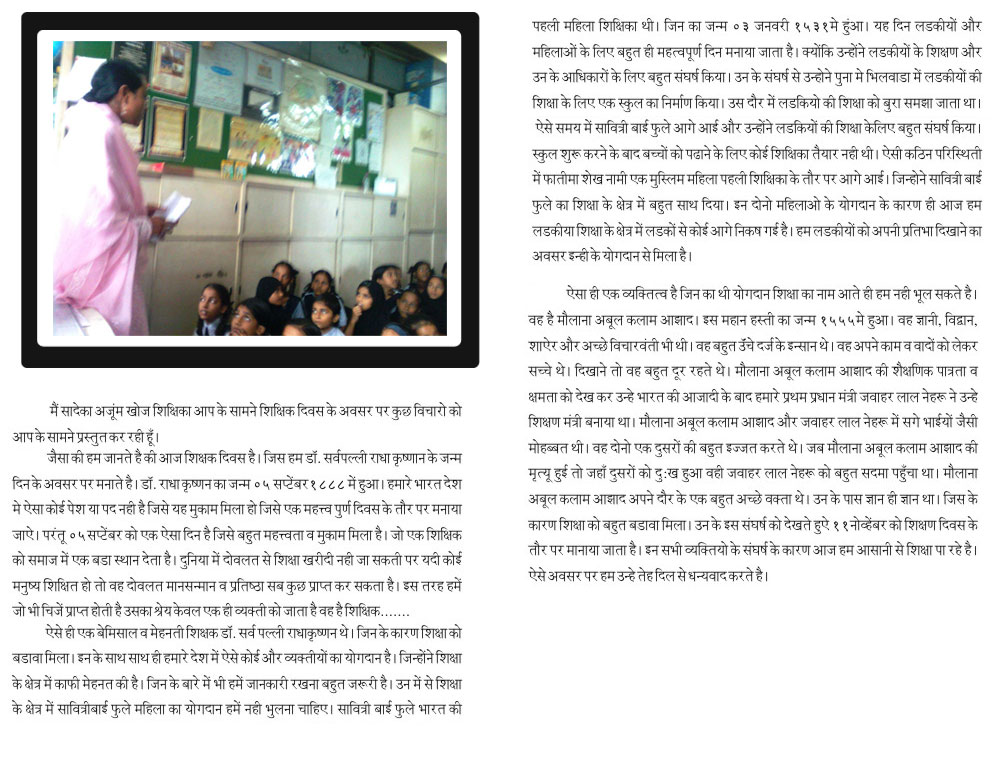 मैं सादेका अजूंम खोज शिक्षिका आप के सामने शिक्षिक दिवस के अवसर पर कुछ विचारो को
आप के सामने प्रस्तुत कर रही हूँ।
जैसा की हम जानते है की आज शिक्षक दिवस है। जिस हम डॉ. सर्वपल्ली राधा कृष्णान के जन्म
दिन के अवसर पर मनाते है। डॉ. राधा कृष्णन का जन्म ०५ सप्टेंबर १८८८ में हुआ। हमारे भारत देश
मे ऐसा कोई पेश या पद नही है जिसे यह मुकाम मिला हो जिसे एक महत्त्व पुर्ण दिवस के तौर पर मनाया
जाऐ। परंतू ०५ सप्टेंबर को एक ऐसा दिन है जिसे बहुत महत्त्वता व मुकाम मिला है। जो एक शिक्षिक
को समाज में एक बडा स्थान देता है। दुनिया में दोवलत से शिक्षा खरीदी नही जा सकती पर यदी कोई
मनुष्य शिक्षित हो तो वह दोवलत मानसन्मान व प्रतिष्ठा सब कुछ प्राप्त कर सकता है। इस तरह हमें
जो भी चिजें प्राप्त होती है उसका श्रेय केवल एक ही व्यक्ती को जाता है वह है शिक्षिक.......
ऐसे ही एक बेमिसाल व मेहनती शिक्षक डॉ. सर्व पल्ली राधाकृष्णन थे। जिन के कारण शिक्षा को
बडावा मिला। इन के साथ साथ ही हमारे देश में ऐसे कोई और व्यक्तीयों का योगदान है। जिन्होंने शिक्षा
के क्षेत्र में काफी मेहनत की है। जिन के बारे में भी हमें जानकारी रखना बहुत जरूरी है। उन में से शिक्षा
के क्षेत्र में सावित्रीबाई फुले महिला का योगदान हमें नही भुलना चाहिए। सावित्री बाई फुले भारत की
पहली महिला शिक्षिका थी। जिन का जन्म ०३ जनवरी १५३१मे हुंआ। यह दिन लडकीयों और
महिलाओं के लिए बहुत ही महत्वपूर्ण दिन मनाया जाता है। क्योंकि उन्होंने लडकीयों के शिक्षण और
उन के आधिकारों के लिए बहुत संघर्ष किया। उन के संघर्ष से उन्होने पुना मे भिलवाडा में लडकीयों की
शिक्षा के लिए एक स्कुल का निर्माण किया। उस दौर में लडकियो की शिक्षा को बुरा समझा जाता था।
ऐसे समय में सावित्री बाई फुले आगे आई और उन्होंने लडकियों की शिक्षा केलिए बहुत संघर्ष किया।
स्कुल शुरू करने के बाद बच्चों को पढाने के लिए कोई शिक्षिका तैयार नही थी। ऐसी कठिन परिस्थिती
में फातीमा शेख नामी एक मुस्लिम महिला पहली शिक्षिका के तौर पर आगे आई। जिन्होने सावित्री बाई
फुले का शिक्षा के क्षेत्र में बहुत साथ दिया। इन दोनो महिलाओ के योगदान के कारण ही आज हम
लडकीया शिक्षा के क्षेत्र में लडकों से कोई आगे निकष गई है। हम लडकीयों को अपनी प्रतिभा दिखाने का
अवसर इन्ही के योगदान से मिला है।
ऐसा ही एक व्यक्तित्व है जिन का थी योगदान शिक्षा का नाम आते ही हम नही भूल सकते है।
वह है मौलाना अबूल कलाम आझाद। इस महान हस्ती का जन्म १५५५मे हुआ। वह ज्ञानी, विद्वान,
शाऐर और अच्छे विचारवंती भी थी। वह बहुत उँचे दर्ज के इन्सान थे। वह अपने काम व वादों को लेकर
सच्चे थे। दिखाने तो वह बहुत दूर रहते थे। मौलाना अबूल कलाम आझाद की शैक्षणिक पात्रता व
क्षमता को देख कर उन्हे भारत की आजादी के बाद हमारे प्रथम प्रधान मंत्री जवाहर लाल नेहरू ने उन्हे
शिक्षण मंत्री बनाया था। मौलाना अबूल कलाम आझाद और जवाहर लाल नेहरू में सगे भाईयों जैसी
मोहब्बत थी। वह दोनो एक दुसरों की बहुत इज्जत करते थे। जब मौलाना अबूल कलाम आझाद की
मृत्यू हुई तो जहाँ दुसरों को दु:ख हुआ वही जवाहर लाल नेहरू को बहुत सदमा पहुँचा था। मौलाना
अबूल कलाम आझाद अपने दौर के एक बहुत अच्छे वक्ता थे। उन के पास ज्ञान ही ज्ञान था। जिस के
कारण शिक्षा को बहुत बडावा मिला। उन के इस संघर्ष को देखते हुऐ ११नोव्हेंबर को शिक्षण दिवस के
तौर पर मानाया जाता है। इन सभी व्यक्तियो के संघर्ष के कारण आज हम आसानी से शिक्षा पा रहे है।
ऐसे अवसर पर हम उन्हे तेह दिल से धन्यवाद करते है।